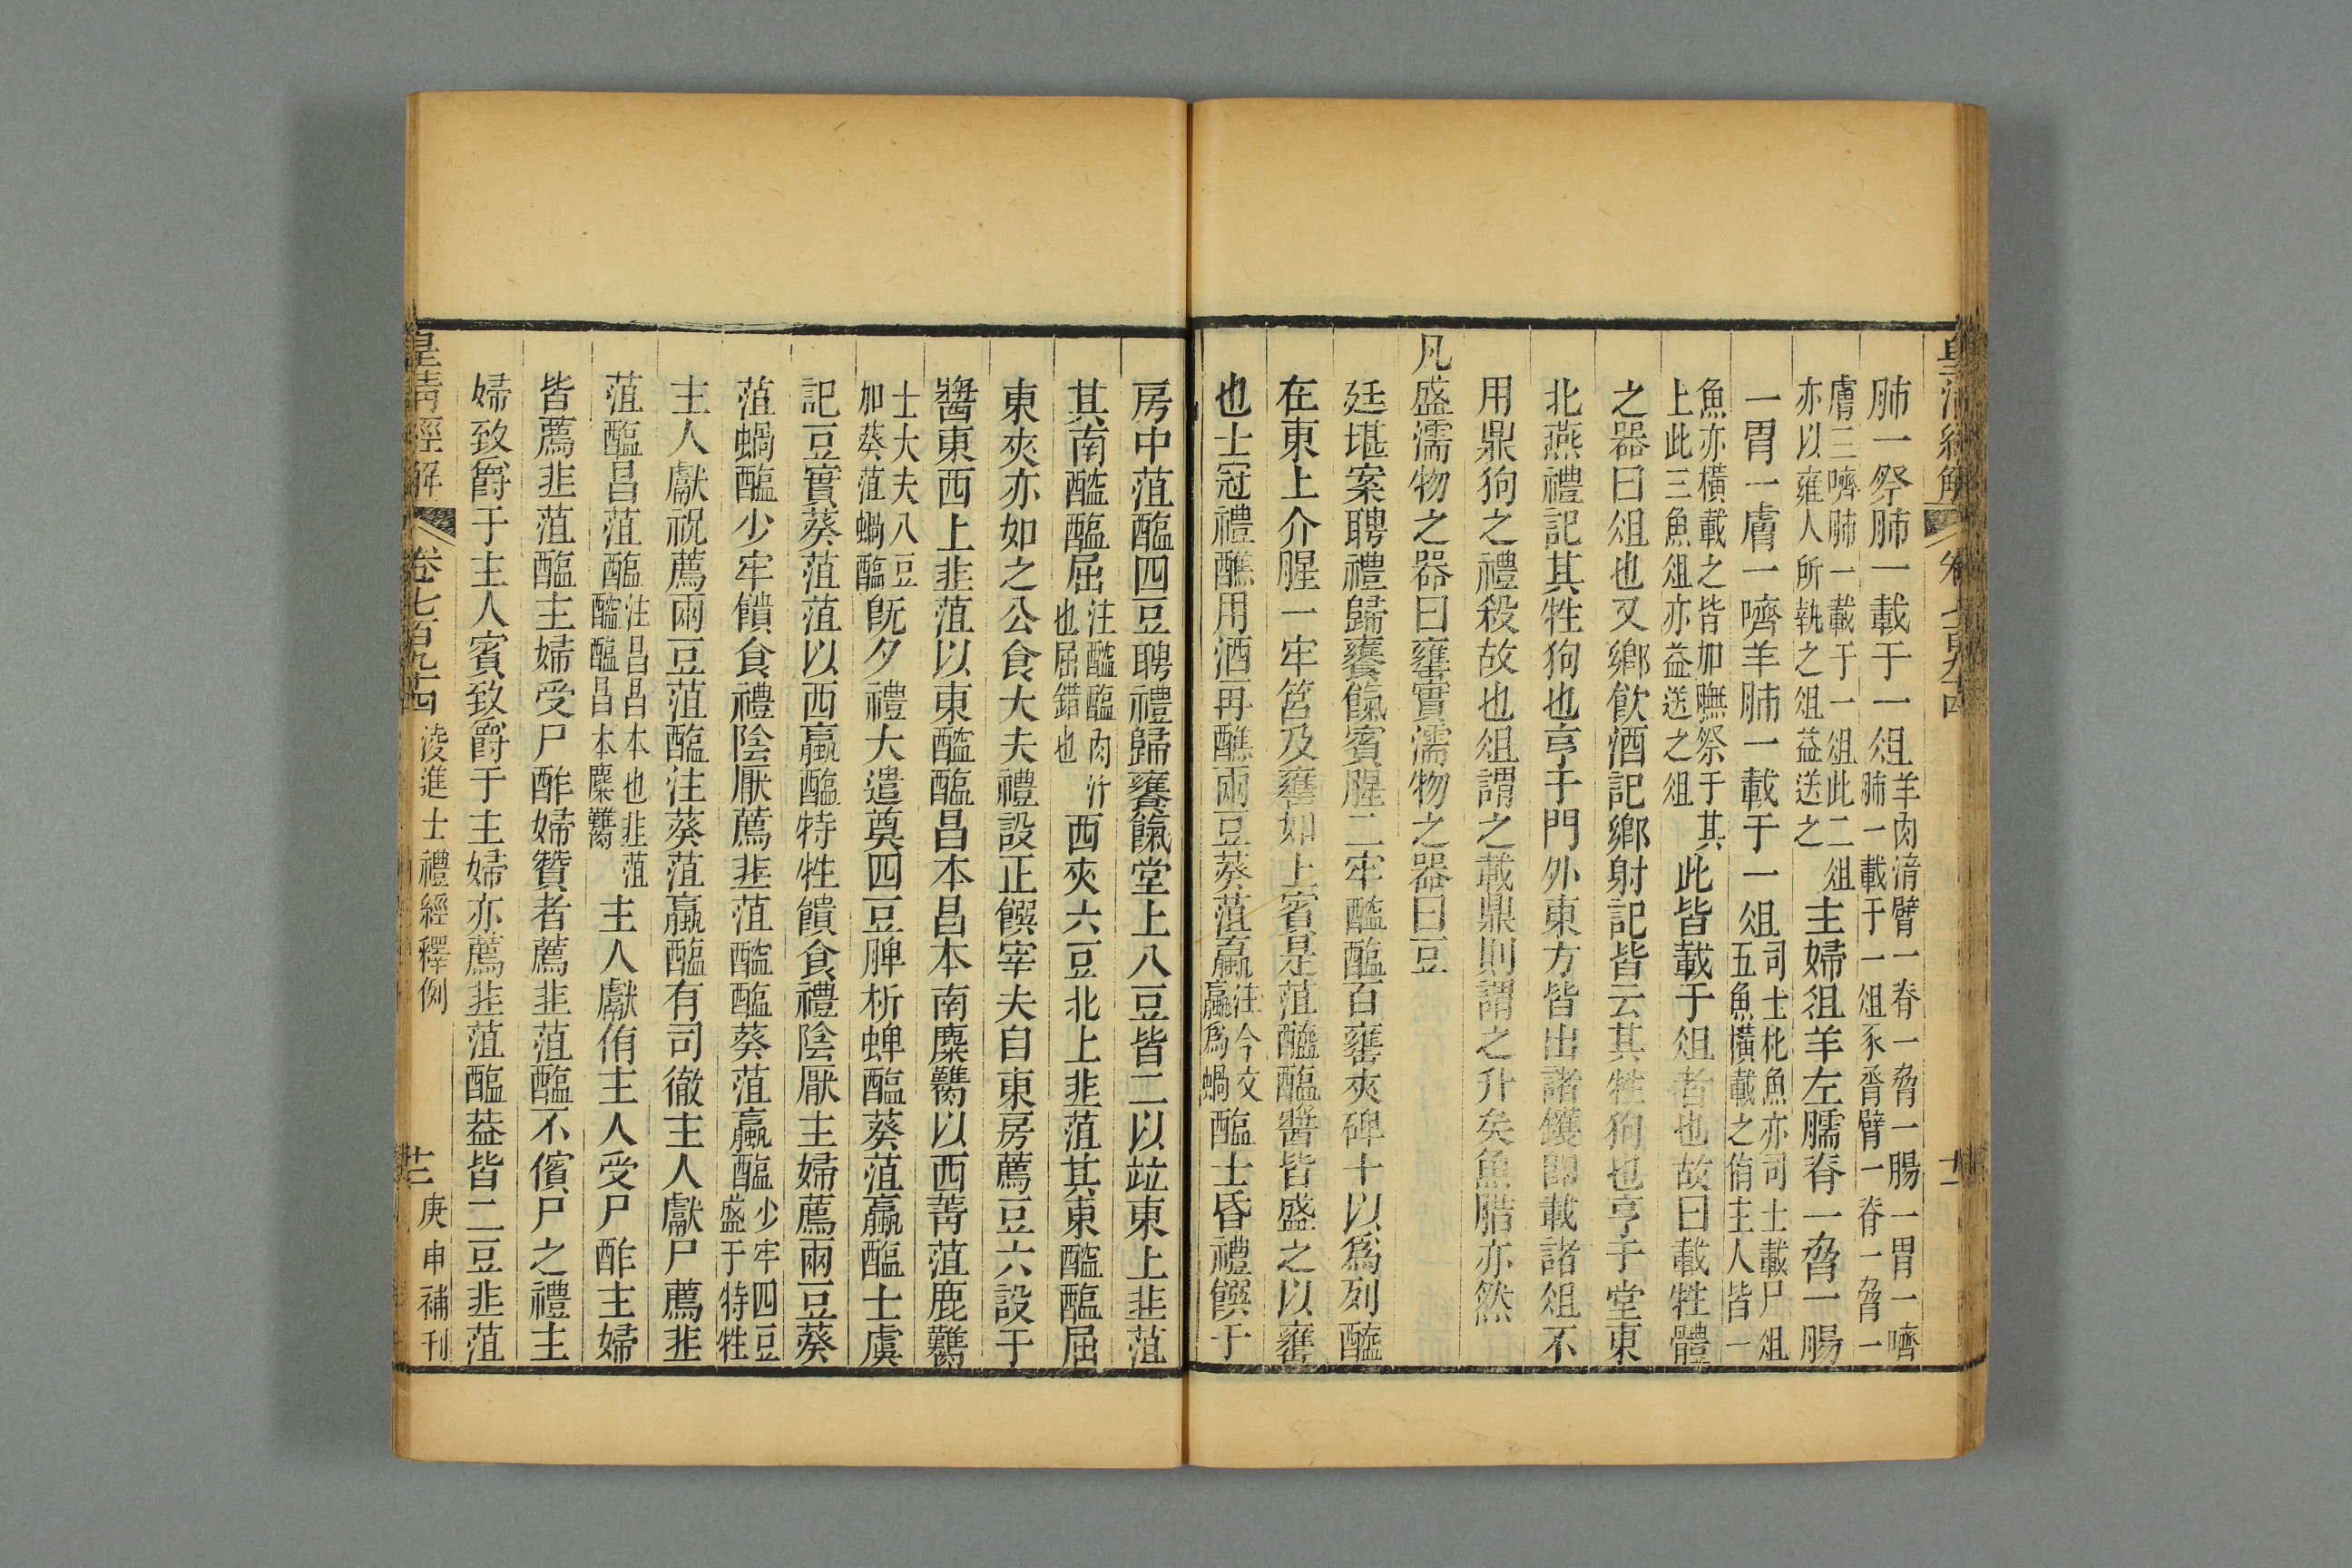 肺一祭肺一載于一俎羊肉湇臂一脊一脅一腸一胃一嚌肺一載于一俎豕脅臂一脊一脅一
膚三嚌肺一載于一俎此二俎亦以雍人所執之俎益送之主婦俎羊左臑脊一脅一腸
一胃一膚一嚌羊肺一載于一俎司士朼魚亦司士載尸俎五魚橫載之侑主人皆一
魚亦橫載之皆加膴祭于其上此三魚俎亦益送之俎此皆載于俎者也故曰載牲體
之器曰俎也又鄉飲酒記鄉射記皆云其牲狗也亨于堂東
北燕禮記其牲狗也亨于門外東方皆出諸鑊即載諸俎不
用鼎狗之禮殺故也俎謂之載鼎則謂之升矣魚腊亦然
凡盛濡物之器曰罋實濡物之器曰豆
廷堪案聘禮歸饔餼賓腥二牢醯醢百罋夾碑十以為列醯
在東上介腥一牢筥及罋如上賓是菹醯醢醬皆盛之以罋
也士冠禮醮用酒再醮兩豆葵菹蠃注今文蠃爲蝸醢士昏禮饌于
房中菹醢四豆聘禮歸饔餼堂上八豆皆二以竝東上韭菹
其南醓醢屈注醓醢肉汁也屈錯也西夾六豆北上韭菹其東醓醢屈
東夾亦如之公食大夫禮設正饌宰夫自東房薦豆六設于
醬東西上韭菹以東醓醢昌本昌本南麋臡以西菁菹鹿臡
士大夫八豆加葵菹蝸醢既夕禮大遣奠四豆脾析蜱醢葵菹蠃醢士虞
記豆實葵菹菹以西蠃醢特牲饋食禮陰厭主婦薦兩豆葵
菹蝸醢少牢饋食禮陰厭薦韭菹醓醢葵菹蠃醢少牢四豆盛于特牲
主人獻祝薦兩豆菹醢注葵菹蠃醢有司徹主人獻尸薦韭
菹醢昌菹醢注昌昌本也韭菹醓醢昌本麋臡主人獻侑主人受尸酢主婦
皆薦韭菹醢主婦受尸酢婦贊者薦韭菹醢不儐尸之禮主
婦致爵于主人賓致爵于主婦亦薦韭菹醢葢皆二豆韭菹
皇清經解 卷七百九十四 淩進士禮經釋例 庚申補刊